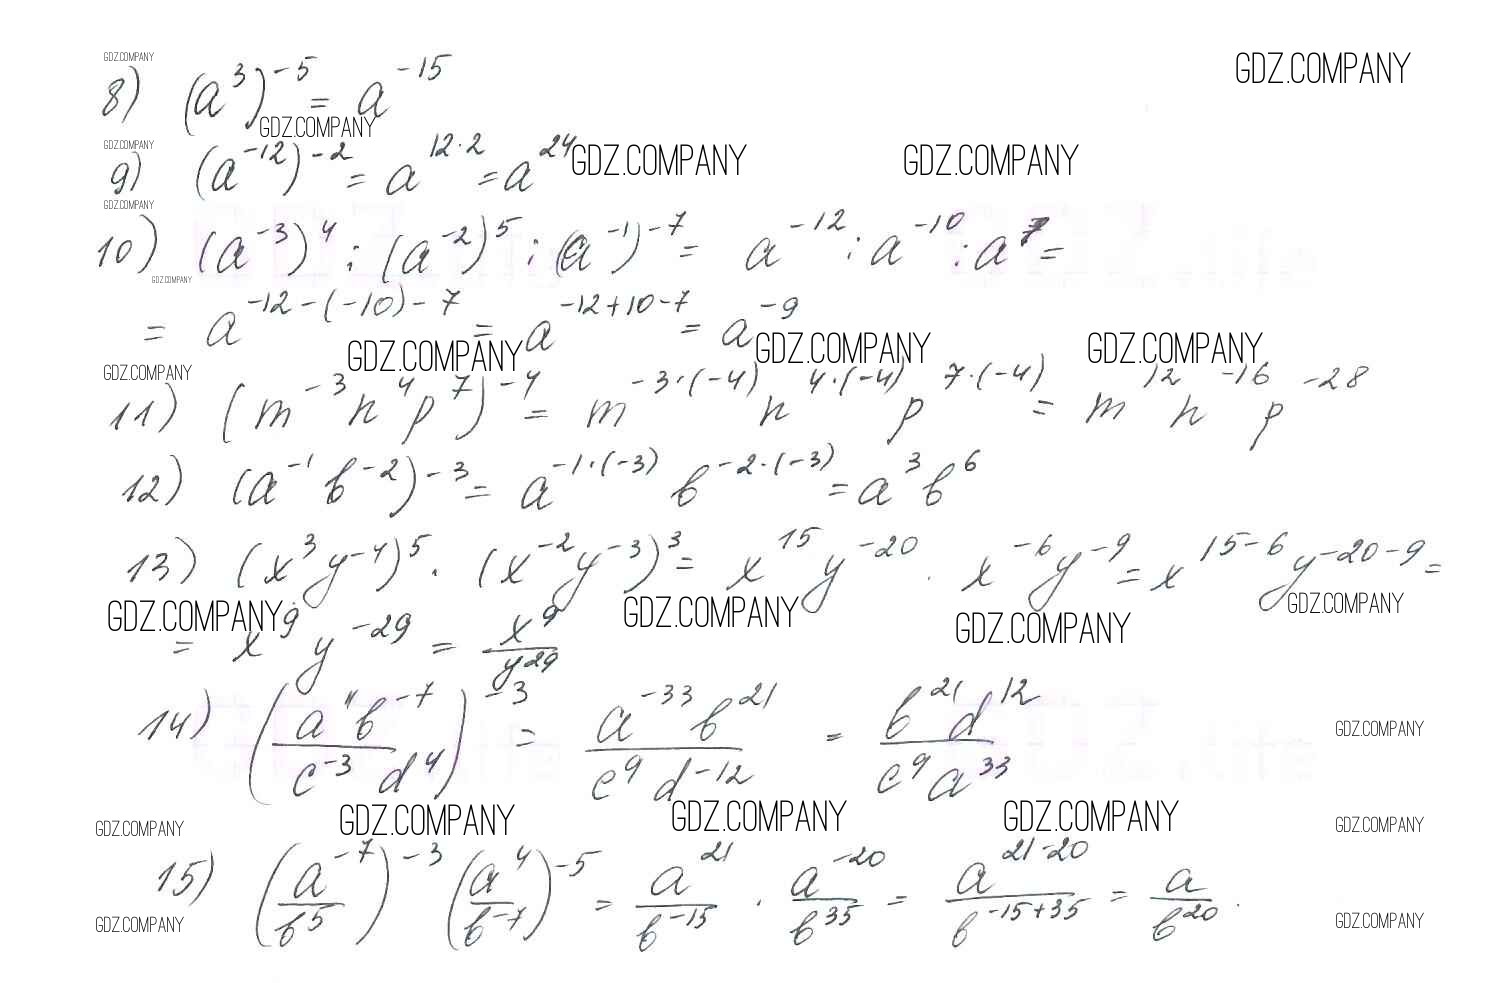 GDZ.COMPANY
GDZ.COMPANY
8) (a^3)^-5 = a^-15
GDZ.COMPANY
GDZ.COMPANY
9) (a^-12)^-2 = a^12·2 = a^24
GDZ.COMPANY GDZ.COMPANY
GDZ.COMPANY
10) (a^-3)^4 : (a^-2)^5 : (a^-1)^-7 = a^-12 : a^-10 : a^7 =
GDZ.COMPANY
= a^-12-(-10)-7 = a^-12+10-7 = a^-9
GDZ.COMPANY GDZ.COMPANY GDZ.COMPANY
GDZ.COMPANY
11) (m^-3 n^4 p^7)^-4 = m^-3·(-4) n^4·(-4) p^7·(-4) = m^12 n^-16 p^-28
12) (a^-1 b^-2)^-3 = a^-1·(-3) b^-2·(-3) = a^3 b^6
13) (x^3 y^-4)^5 · (x^-2 y^-3)^3 = x^15 y^-20 · x^-6 y^-9 = x^15-6 y^-20-9 =
GDZ.COMPANY GDZ.COMPANY GDZ.COMPANY GDZ.COMPANY
= x^9 y^-29 = x^9/y^29
14) (a^11 b^-7 / c^-3 d^4)^-3 = a^-33 b^21 / c^9 d^-12 = b^21 d^12 / c^9 a^33
GDZ.COMPANY
GDZ.COMPANY GDZ.COMPANY GDZ.COMPANY GDZ.COMPANY GDZ.COMPANY
15) (a^-7 / b^5)^-3 (a^4 / b^-7)^-5 = a^21 / b^-15 · a^-20 / b^35 = a^21-20 / b^-15+35 = a / b^20.
GDZ.COMPANY GDZ.COMPANY